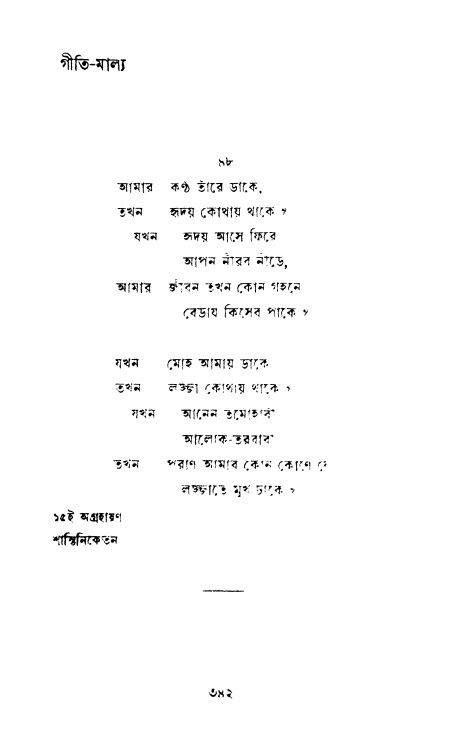 গীতি-মাল্য
৯৮
আমার কণ্ঠ তাঁরে ডাকে,
তখন হৃদয় কোথায় থাকে ?
যখন হৃদয় আসে ফিরে
আপন নীরব নীড়ে,
আমার জীবন তখন কোন গহনে
বেড়ায় কিসের পাকে ?
যখন মোহ আমায় ডাকে
তখন লজ্জা কোথায় থাকে ?
যখন আনেন তমোহারী
আলোক-তরবারী
তখন পরাণ আমার কোন কোণে যে
লজ্জাতে মুখ ঢাকে ?
১৫ই অগ্রহায়ণ
শান্তিনিকেতন
৩৪২